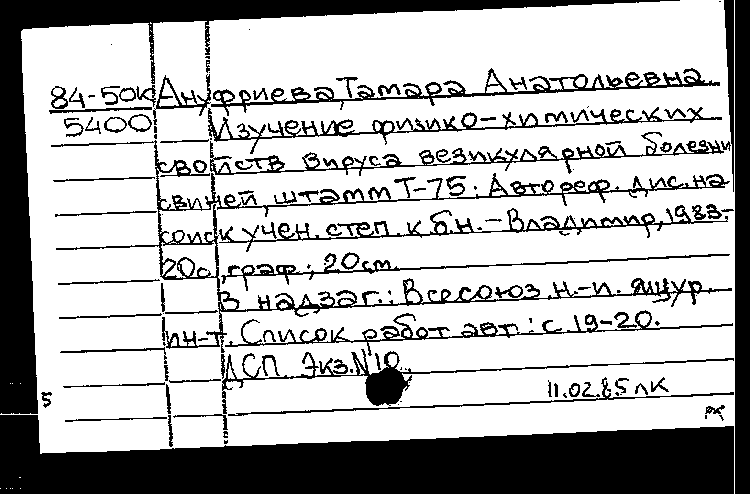 84-50к Ануфриева, Тамара Анатольевна.
5400 Изучение физико-химических
свойств вируса везикулярной болезни
свиней, штамм Т-75: Автореф. дис. на
соиск учен. степ. к.б.н. - Владимир, 1983.-
20с., граф.; 20см.
В надзаг.: Всесоюз. н.-и. ящур.
ин-т. Список работ авт.: с. 19-20.
ДСП Экз. № 10.
5
11.02.85 лк